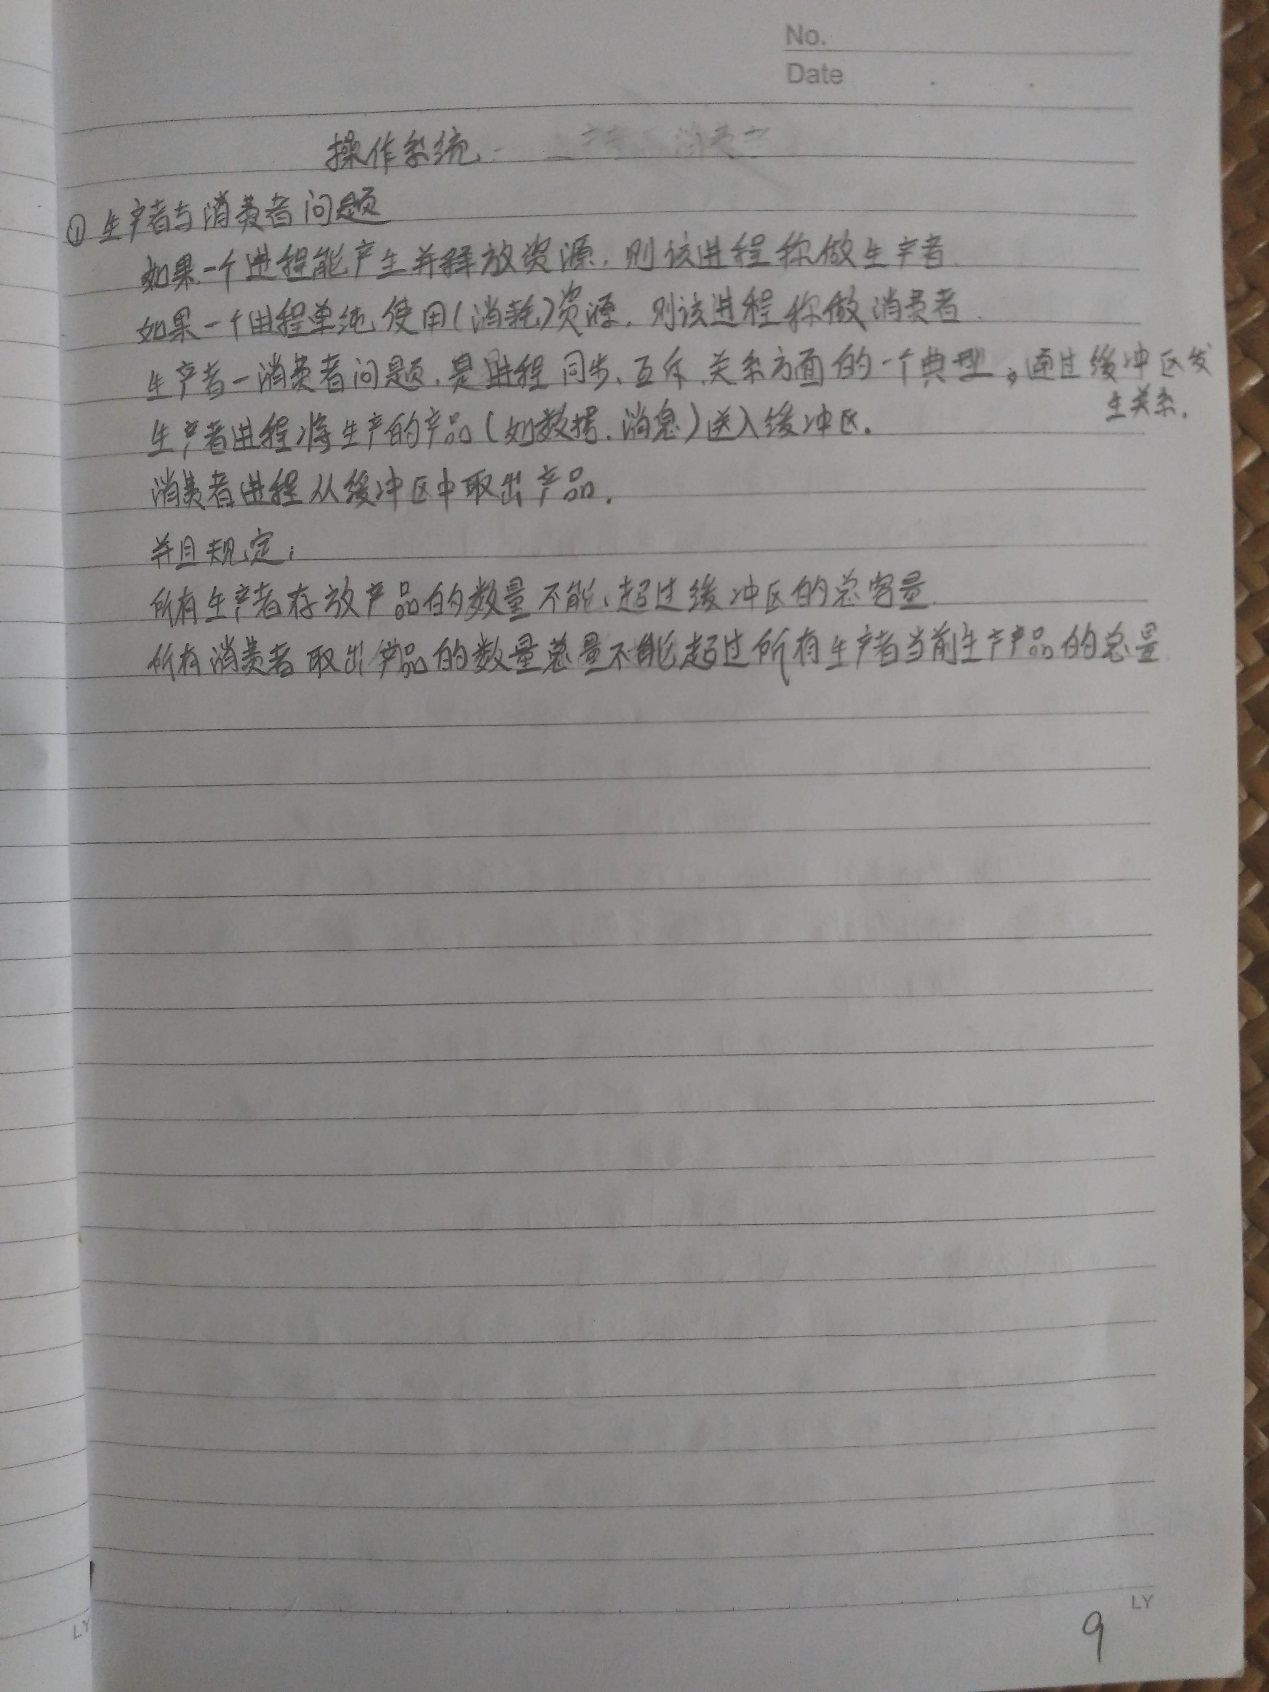 No.
Date
操作系统
① 生产者与消费者问题
如果一个进程能产生并释放资源,则该进程称做生产者
如果一个进程单纯使用(消耗)资源,则该进程称做消费者.
生产者-消费者问题,是进程同步、互斥关系方面的一个典型,通过缓冲区发
生关系.
生产者进程将生产的产品(如数据、消息)送入缓冲区.
消费者进程从缓冲区中取出产品.
并且规定:
所有生产者存放产品的数量不能超过缓冲区的总容量
所有消费者取出产品的数量总量不能超过所有生产者当前生产产品的总量
LY
LY
9